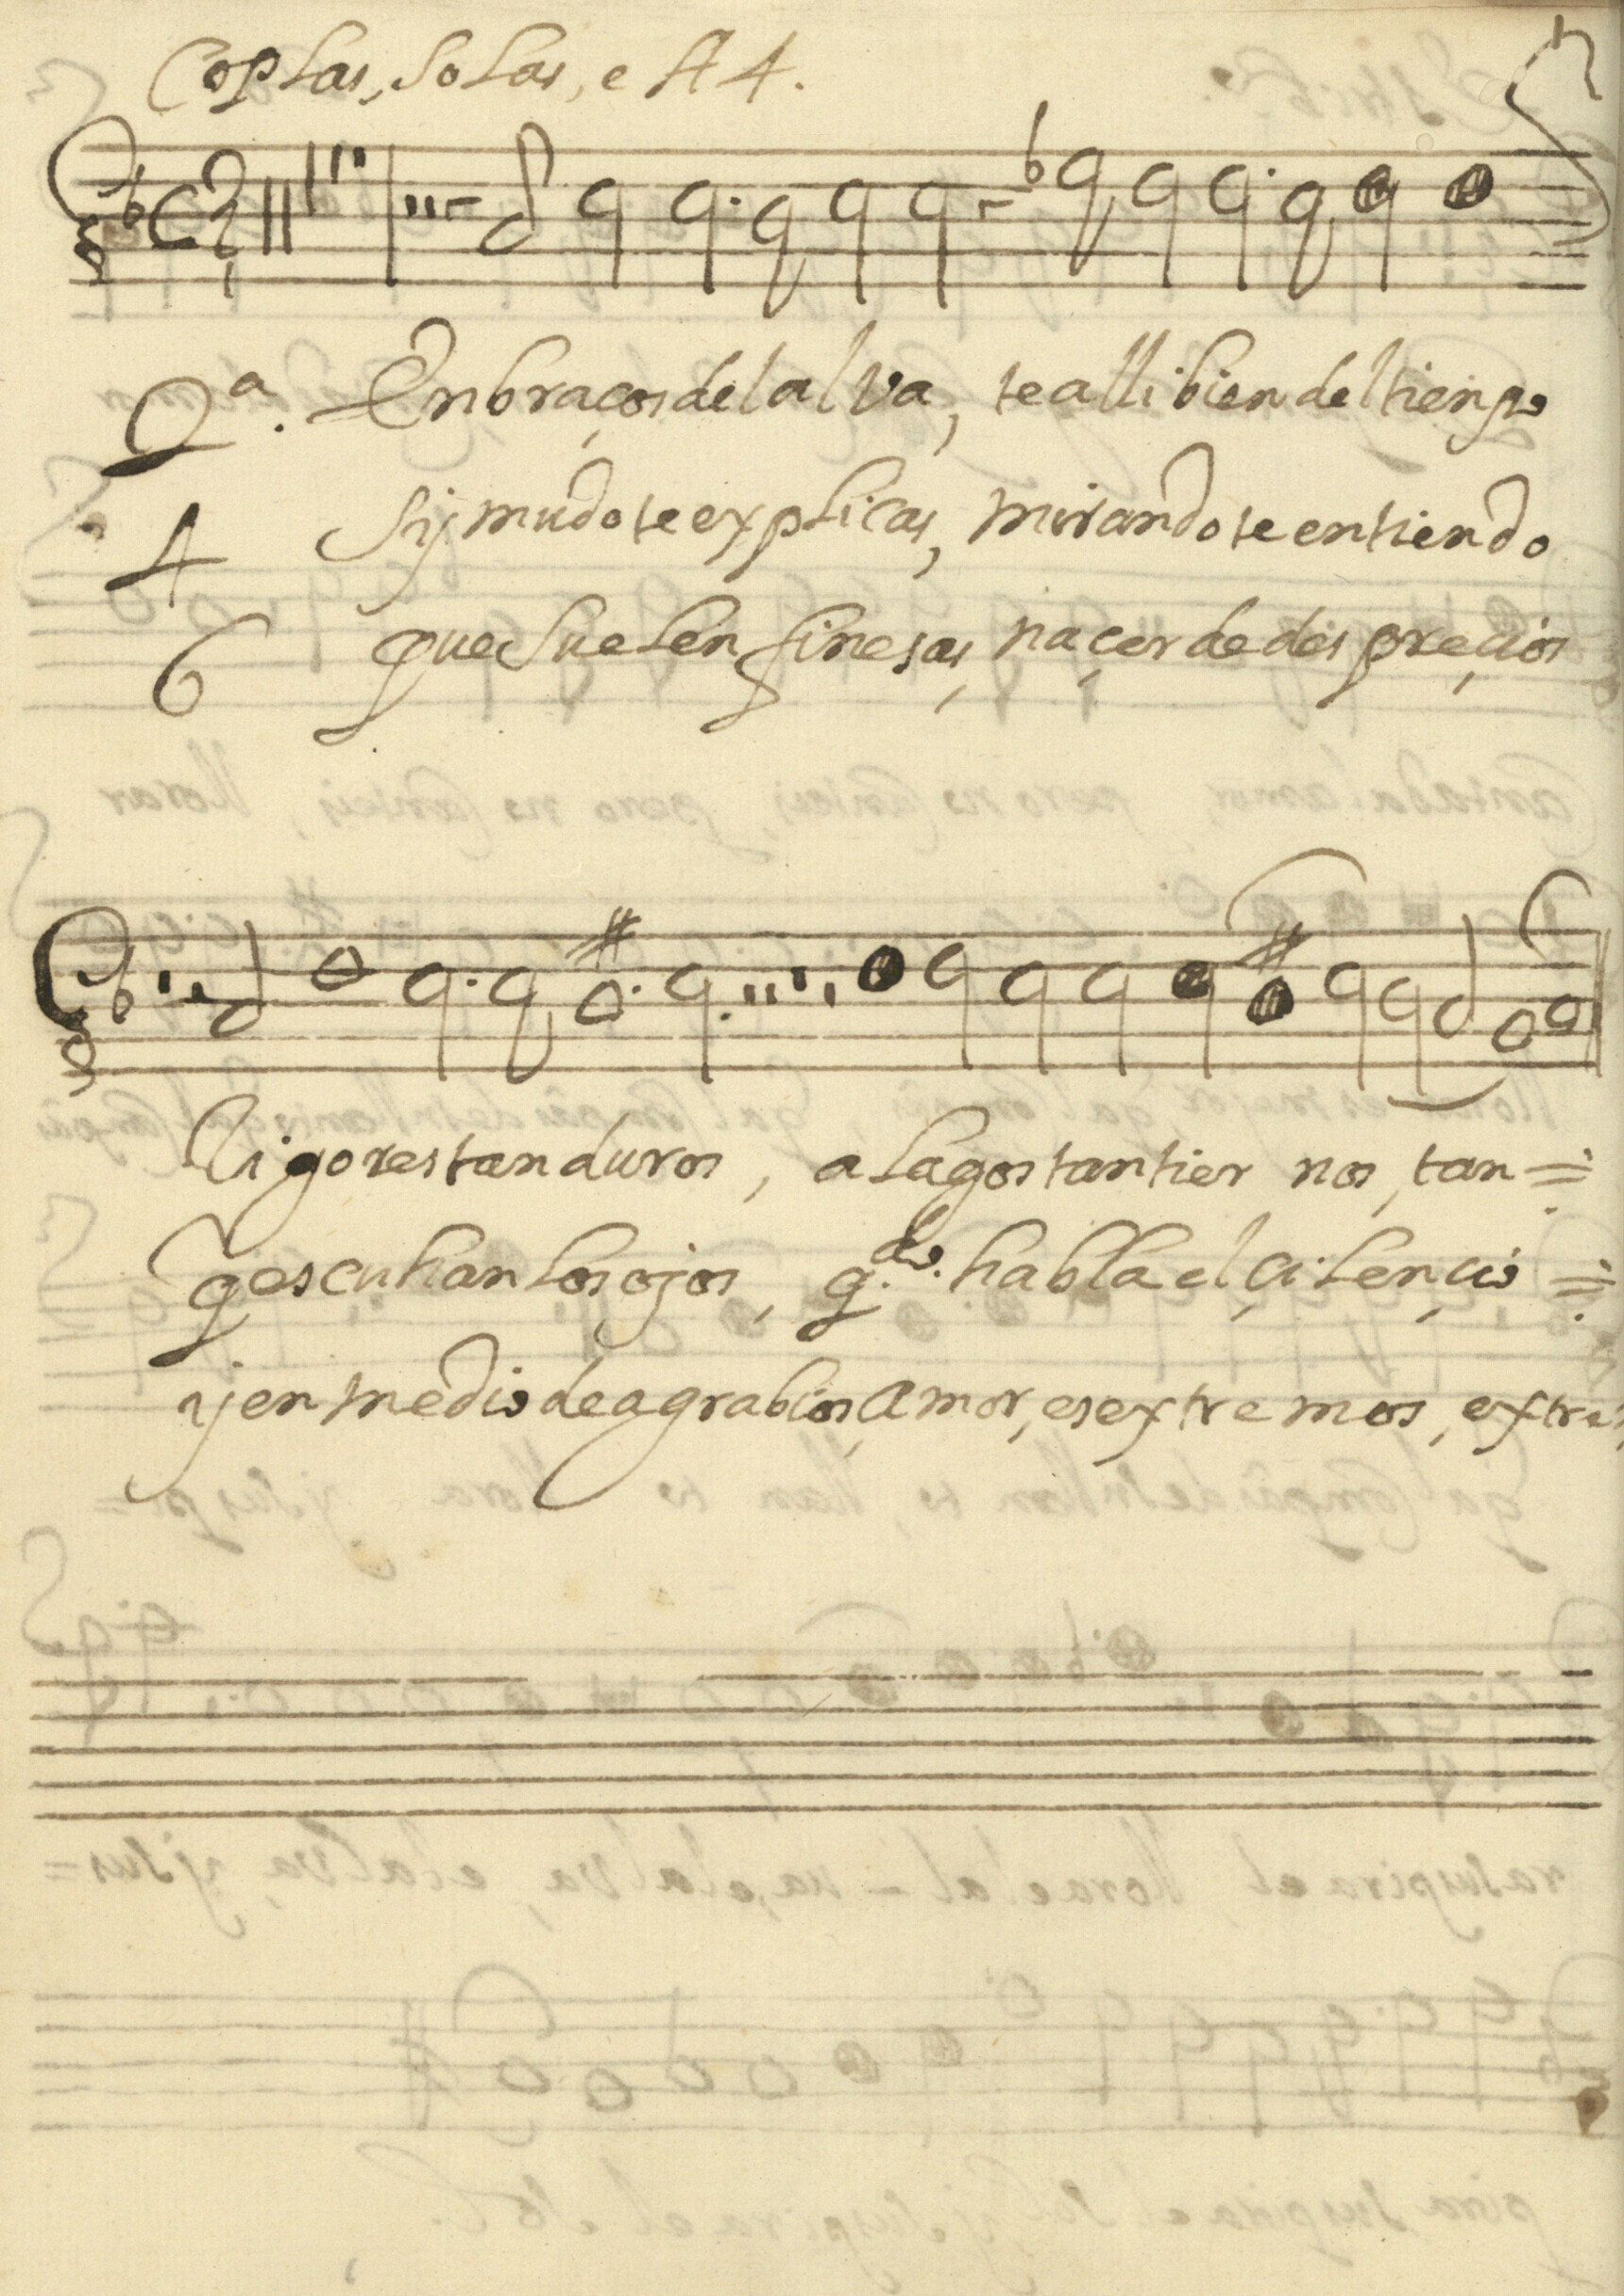 Coplas, Solas, e A 4.
2ª. En braços del alva, te alli bien del tienpo
4 Sij mudo te explicas, mirando te entiendo
6 que suelen finesas, naçer de despreçios
Rigores tan duros, alagos tan tiernos, tan =
q escuhan los ojos, q.do habla el çilençio =
ij en medio de agrabios, amor, es extremos, extre